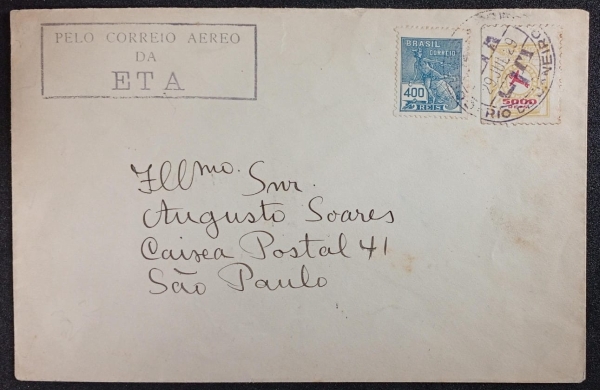 PELO CORREIO AEREO
DA
ETA
BRASIL
CORREIO
400
REIS
29 JUL 29
ETA
5000
RIO DE JANEIRO
Illmo. Snr.
Augusto Soares
Caixa Postal 41
São Paulo